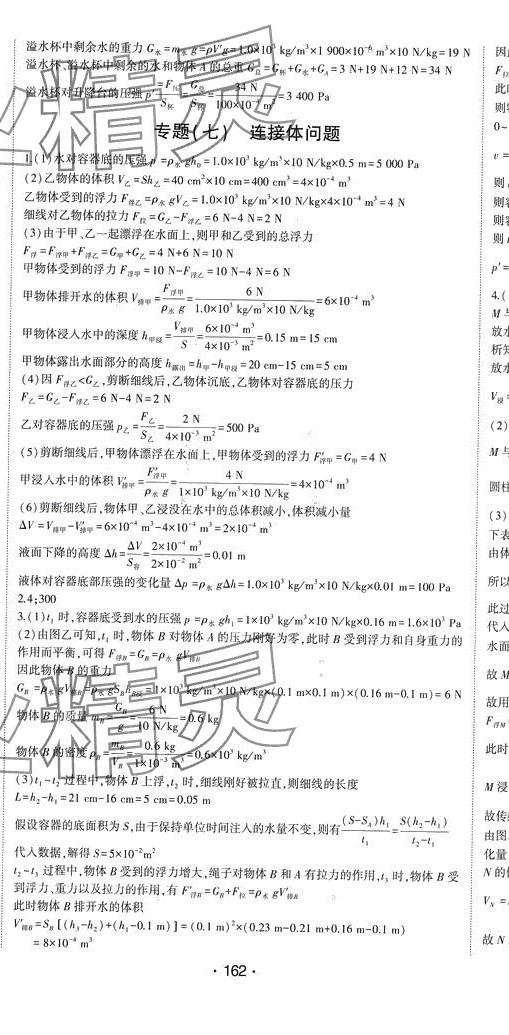 溢水杯中剩余水的重力 G水=m水 g=ρV′g=1.0×10³ kg/m³×1 900×10⁻⁶ m³×10 N/kg=19 N
溢水杯、溢水杯中剩余的水和物体 A 的总重 G总=G杯+G水+GA=3 N+19 N+12 N=34 N
溢水杯对升降台的压强 p′=F压/S杯=G总/S杯=34 N/100×10⁻⁴ m²=3 400 Pa
专题(七) 连接体问题
1.(1)水对容器底的压强 p=ρ水 gh₀=1.0×10³ kg/m³×10 N/kg×0.5 m=5 000 Pa
(2)乙物体的体积 V乙=Sh乙=40 cm²×10 cm=400 cm³=4×10⁻⁴ m³
乙物体受到的浮力 F浮乙=ρ水 gV乙=1.0×10³ kg/m³×10 N/kg×4×10⁻⁴ m³=4 N
细线对乙物体的拉力 F拉=G乙-F浮乙=6 N-4 N=2 N
(3)由于甲、乙一起漂浮在水面上,则甲和乙受到的总浮力
F浮=F浮甲+F浮乙=G甲+G乙=4 N+6 N=10 N
甲物体受到的浮力 F浮甲=10 N-F浮乙=10 N-4 N=6 N
甲物体排开水的体积 V排甲=F浮甲/ρ水 g=6 N/1.0×10³ kg/m³×10 N/kg=6×10⁻⁴ m³
甲物体浸入水中的深度 h甲浸=V排甲/S=6×10⁻⁴ m³/4×10⁻³ m²=0.15 m=15 cm
甲物体露出水面部分的高度 h露出=h甲-h甲浸=20 cm-15 cm=5 cm
(4)因 F浮乙<G乙,剪断细线后,乙物体沉底,乙物体对容器底的压力
F乙=G乙-F浮乙=6 N-4 N=2 N
乙对容器底的压强 p乙=F乙/S乙=2 N/4×10⁻³ m²=500 Pa
(5)剪断细线后,甲物体漂浮在水面上,甲物体受到的浮力 F′浮甲=G甲=4 N
甲浸入水中的体积 V′排甲=F′浮甲/ρ水 g=4 N/1×10³ kg/m³×10 N/kg=4×10⁻⁴ m³
(6)剪断细线后,物体甲、乙浸没在水中的总体积减小,体积减小量
ΔV=V排甲-V′排甲=6×10⁻⁴ m³-4×10⁻⁴ m³=2×10⁻⁴ m³
液面下降的高度 Δh=ΔV/S容=2×10⁻⁴ m³/2×10⁻² m²=0.01 m
液体对容器底部压强的变化量 Δp=ρ水 gΔh=1.0×10³ kg/m³×10 N/kg×0.01 m=100 Pa
2.4;300
3.(1)t₁ 时,容器底受到水的压强 p=ρ水 gh₁=1×10³ kg/m³×10 N/kg×0.16 m=1.6×10³ Pa
(2)由图乙可知,t₁ 时,物体 B 对物体 A 的压力刚好为零,此时 B 受到浮力和自身重力的
作用而平衡,可得 F浮B=GB=ρ水 gV排B
因此物体 B 的重力
GB=ρ水 gV排B=ρ水 gSBhB浸=1×10³ kg/m³×10 N/kg×(0.1 m×0.1 m)×(0.16 m-0.1 m)=6 N
物体 B 的质量 mB=GB/g=6 N/10 N/kg=0.6 kg
物体 B 的密度 ρB=mB/VB=0.6 kg/1×10⁻³ m³=0.6×10³ kg/m³
(3)t₁~t₂ 过程中,物体 B 上浮,t₂ 时,细线刚好被拉直,则细线的长度
L=h₂-h₁=21 cm-16 cm=5 cm=0.05 m
假设容器的底面积为 S,由于保持单位时间注入的水量不变,则有(S-SA)h₁/t₁=S(h₂-h₁)/t₂-t₁
代入数据,解得 S=5×10⁻²m²
t₂~t₃ 过程中,物体 B 受到的浮力增大,绳子对物体 B 和 A 有拉力的作用,t₃ 时,物体 B 受
到浮力、重力以及拉力的作用,有 F′浮B=GB+F拉=ρ水 gV′排B
此时物体 B 排开水的体积
V′排B=SB[(h₃-h₂)+(h₁-0.1 m)]=(0.1 m)²×(0.23 m-0.21 m+0.16 m-0.1 m)
=8×10⁻⁴ m³
·162·